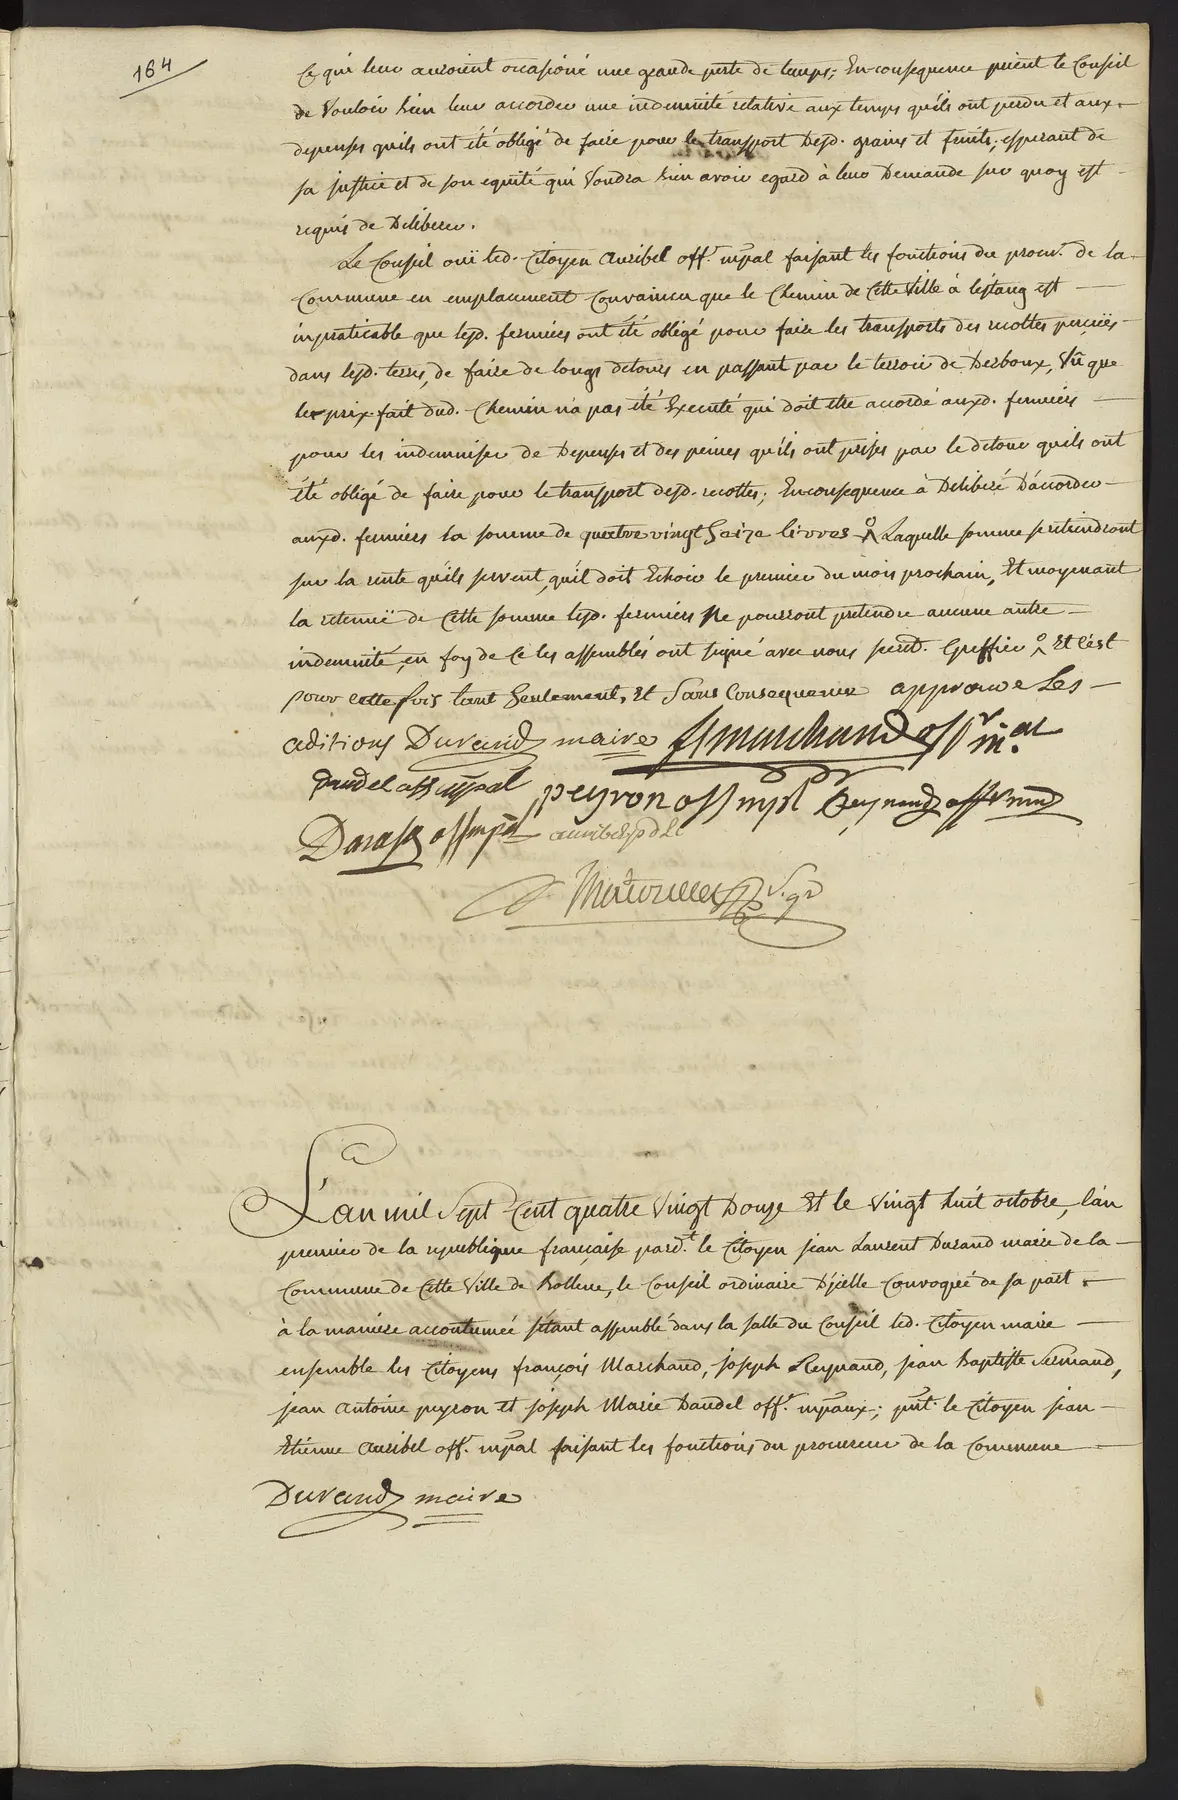 164
Ce qui leur auroient occasioné une grande perte de temps; En consequence prient le Conseil
de Vouloir bien leur accorder une indemnité relative aux temps qu'ils ont perdu et aux
depenses qu'ils ont été obligé de faire pour le transport Desd. grains et fruits, esperant de
sa justice et de son equité qui Voudra bien avoir egard à leur Demande sur quoy est
requis de Deliberer.
Le Conseil ouï led. Citoyen Auribel off.r mpal faisant les fonctions du procur. de la
Commune en emplacement Convaincu que le Chemin de Cette Ville à lestang est
inpraticable que lesd. fermiers ont été obligé pour faire les transports des recoltes perçuës
dans lesd. terres, de faire de longs detours en passant par le terroir de Derboux, Vû que
le prix fait dud. Chemin n'a pas été Executé qui doit etre accordé auxd. fermiers
pour les indemniser de Depenses et des peines qu'ils ont prises par le detour qu'ils ont
été obligé de faire pour le transport desd. recoltes; En consequence à Deliberé D'accorder
auxd. fermiers la somme de quatre vingt Seize livres Laquelle somme se retiendront
sur la rente qu'ils servent, qu'il doit Echoir le premier du mois prochain, Et moyenant
la retenuë de Cette somme lesd. fermiers Ne pourront pretendre aucune autre
indemnité, en foy de Ce les assemblés ont signé avec nous secret. Greffier Et c'est
pour cette fois tant Seulement, Et Sans Consequence approuve Les
aditions Durand maire f marchand offr mal
Daudel off mpal peyron off mpl Reynaud off mp
off mpal auribel
L'an mil Sept Cent quatre Vingt Douze Et le Vingt huit octobre, l'an
premier de la republique française pard.t le Citoyen jean Laurent Durand maire de la
Commune de Cette Ville de Bollene, le Conseil ordinaire D'jcelle Convoqué de sa part
à la maniere accoutumée s'étant assemblé dans la salle du Conseil led. Citoyen maire
ensemble les Citoyens françois Marchand, joseph Reynaud, jean Baptiste
jean Antoine peyron et joseph Marie Daudel off.r mpaux; pnt. le Citoyen jean
Etienne Auribel off.r mpal faisant les fonctions du procureur de la Commune
Durand maire